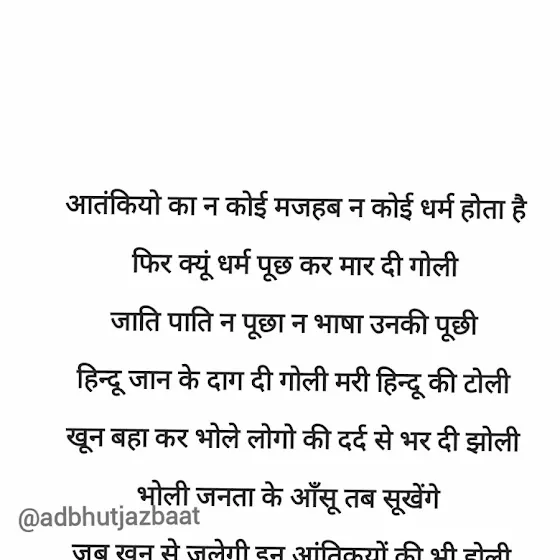 आतंकियो का न कोई मजहब न कोई धर्म होता है
फिर क्यूं धर्म पूछ कर मार दी गोली
जाति पाति न पूछा न भाषा उनकी पूछी
हिन्दू जान के दाग दी गोली मरी हिन्दू की टोली
खून बहा कर भोले लोगो की दर्द से भर दी झोली
भोली जनता के आँसू तब सूखेंगे
@adbhutjazbaat
जब खून से जलेगी इन आंतकियों की भी होली